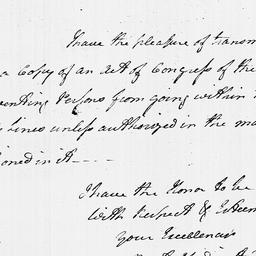 I have the pleasure of transm
a Copy of an Act of Congress of the
venting Persons from going within
Lines unless authorized in the ma
ioned in it
I have the Honor to be
With Respect & Esteem
Your Excellencies